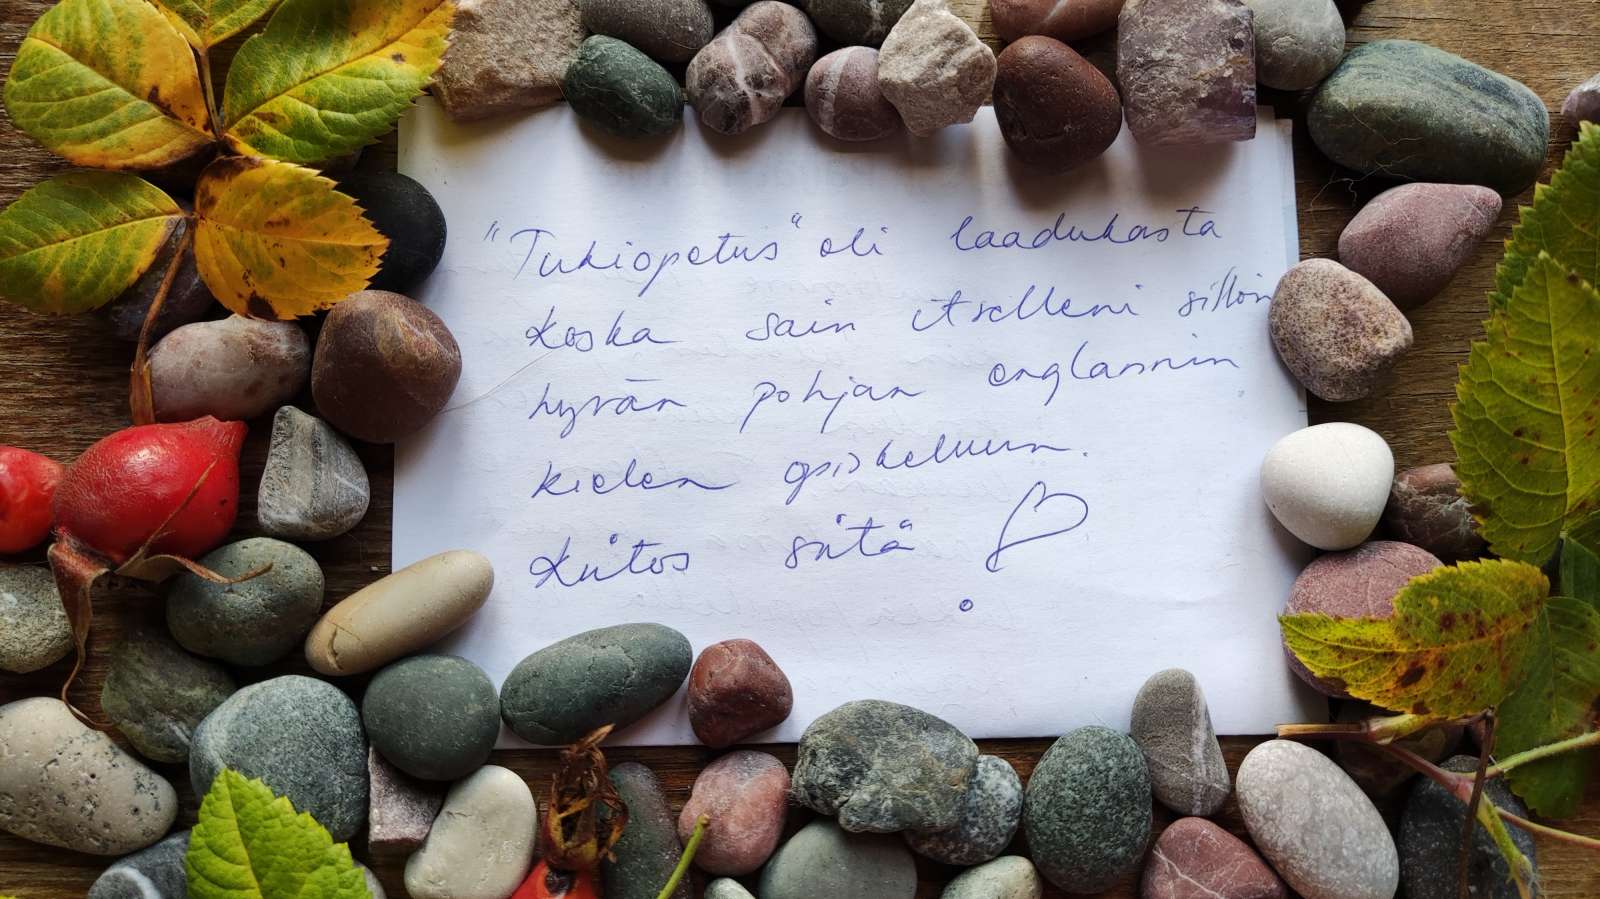 "Tukiopetus" oli laadukasta
koska sain itselleni silloin
hyvän pohjan englannin
kielen opiskeluun.
Kiitos siitä